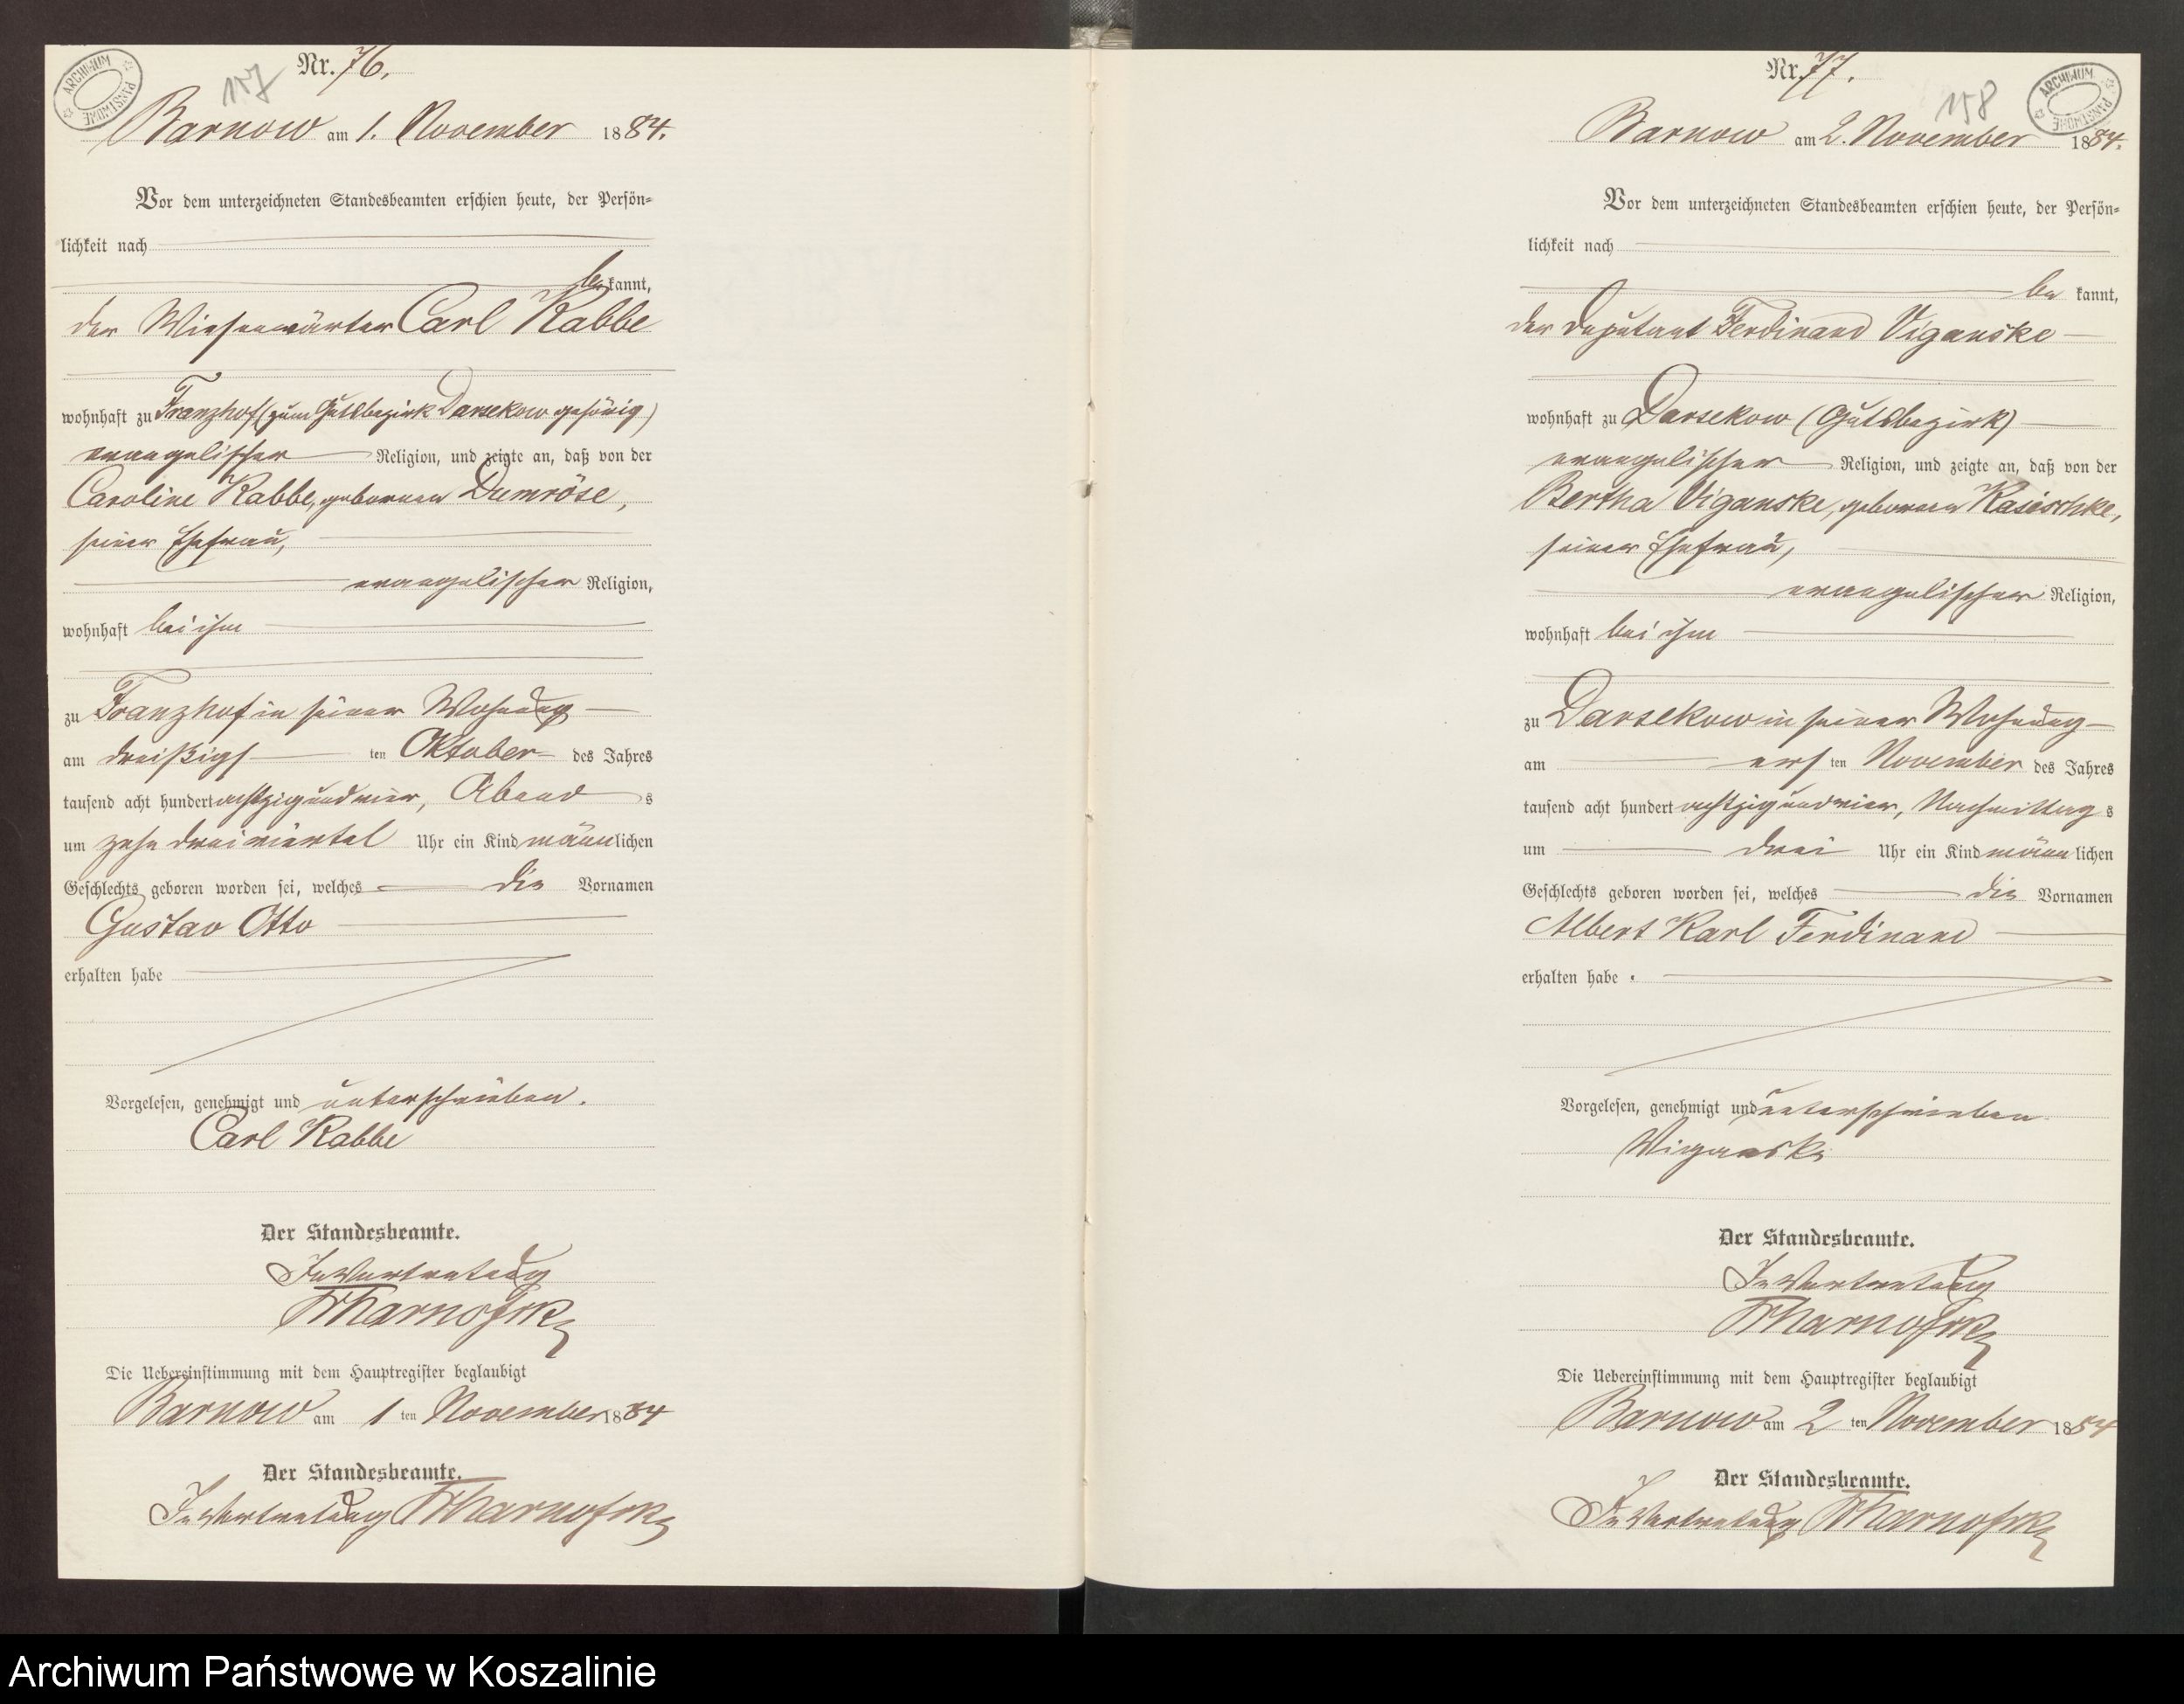 ARCHIWUM PAŃSTWOWE
157
Nr. 76.
Barnow am 1. November 1884.
Vor dem unterzeichneten Standesbeamten erschien heute, der Persön-
lichkeit nach
be kannt,
der Wiesenwärter Carl Rabbe
wohnhaft zu Franzhof (zum Gutsbezirk Darsekow gehörig)
evangelischer Religion, und zeigte an, daß von der
Caroline Rabbe, geborenen Dumröse,
seiner Ehefrau,
evangelischer Religion,
wohnhaft bei ihm
zu Franzhof in seiner Wohnung
am dreißigs ten Oktober des Jahres
tausend acht hundert achtzig und vier, Abend s
um zehn dreiviertel Uhr ein Kind männ lichen
Geschlechts geboren worden sei, welches die Vornamen
Gustav Otto
erhalten habe
Vorgelesen, genehmigt und unterschrieben.
Carl Rabbe
Der Standesbeamte.
In Vertretung
Die Uebereinstimmung mit dem Hauptregister beglaubigt
Barnow am 1 ten November 1884
Der Standesbeamte.
In Vertretung
ARCHIWUM PAŃSTWOWE
158
Nr. 77.
Barnow am 2. November 1884.
Vor dem unterzeichneten Standesbeamten erschien heute, der Persön-
lichkeit nach
be kannt,
der Deputant Ferdinand Viganske
wohnhaft zu Darsekow (Gutsbezirk)
evangelischer Religion, und zeigte an, daß von der
Bertha Viganske, geborenen Kasischke,
seiner Ehefrau,
evangelischer Religion,
wohnhaft bei ihm
zu Darsekow in seiner Wohnung
am ers ten November des Jahres
tausend acht hundert achtzig und vier, Nachmittag s
um drei Uhr ein Kind männ lichen
Geschlechts geboren worden sei, welches die Vornamen
Albert Karl Ferdinand
erhalten habe.
Vorgelesen, genehmigt und unterschrieben
Wiganske
Der Standesbeamte.
In Vertretung
Die Uebereinstimmung mit dem Hauptregister beglaubigt
Barnow am 2 ten November 1884
Der Standesbeamte.
In Vertretung
Archiwum Państwowe w Koszalinie